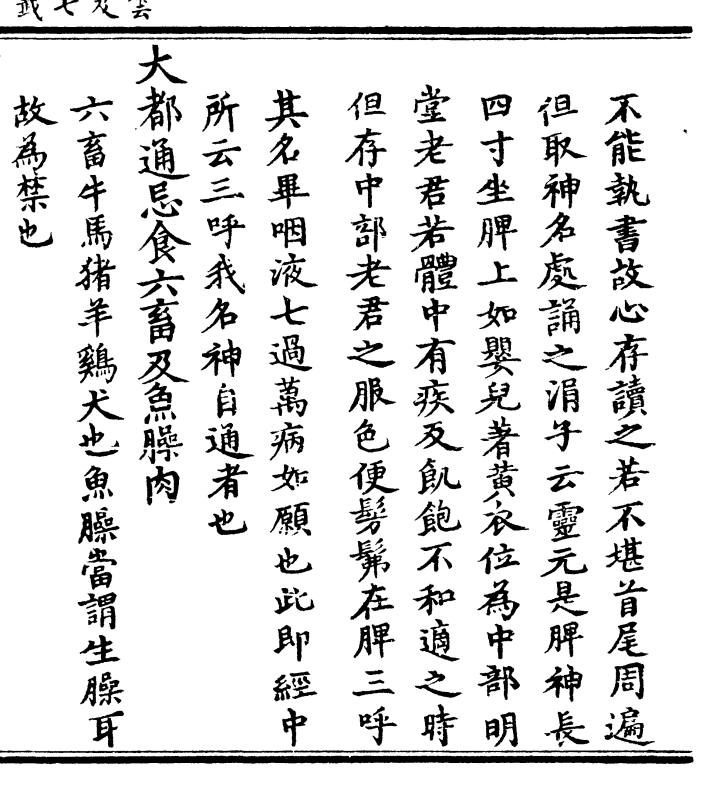 不能執書故心存讀之若不堪首尾周遍
但取神名處誦之涓子云靈元是脾神長
四寸坐脾上如嬰兒著黃衣位為中部明
堂老君若體中有疾及飢飽不和適之時
但存中部老君之服色便髣髴在脾三呼
其名畢咽液七過萬病如願也此即經中
所云三呼我名神自通者也
大都通忌食六畜及魚臊肉
六畜牛馬猪羊鷄犬也魚臊當謂生臊耳
故為禁也